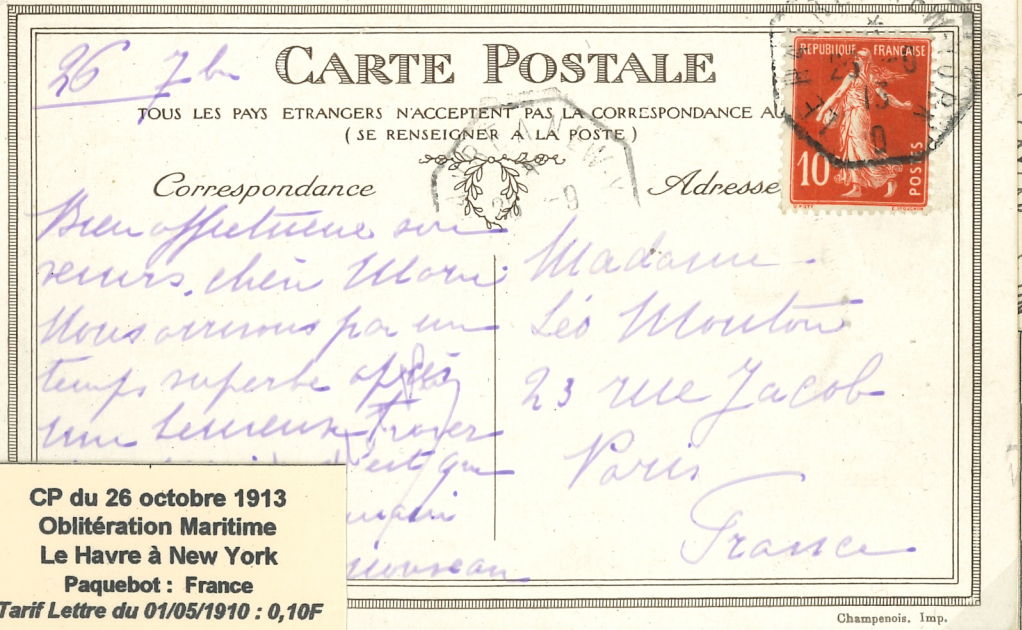 26 7b
CARTE POSTALE
TOUS LES PAYS ETRANGERS N'ACCEPTENT PAS LA CORRESPONDANCE AU
(SE RENSEIGNER A LA POSTE)
Correspondance
Adresse
REPUBLIQUE FRANÇAISE
10
POSTES
LE HAVRE A NEW-YORK
Bien affectueux sou
venirs, chère
Nous arrivons par un
temps superbe après
une heureuse
c'est que
Madame
Léo Mouton
23 rue Jacob
Paris
France
CP du 26 octobre 1913
Oblitération Maritime
Le Havre à New York
Paquebot : France
Tarif Lettre du 01/05/1910 : 0,10F
Champenois, Imp.